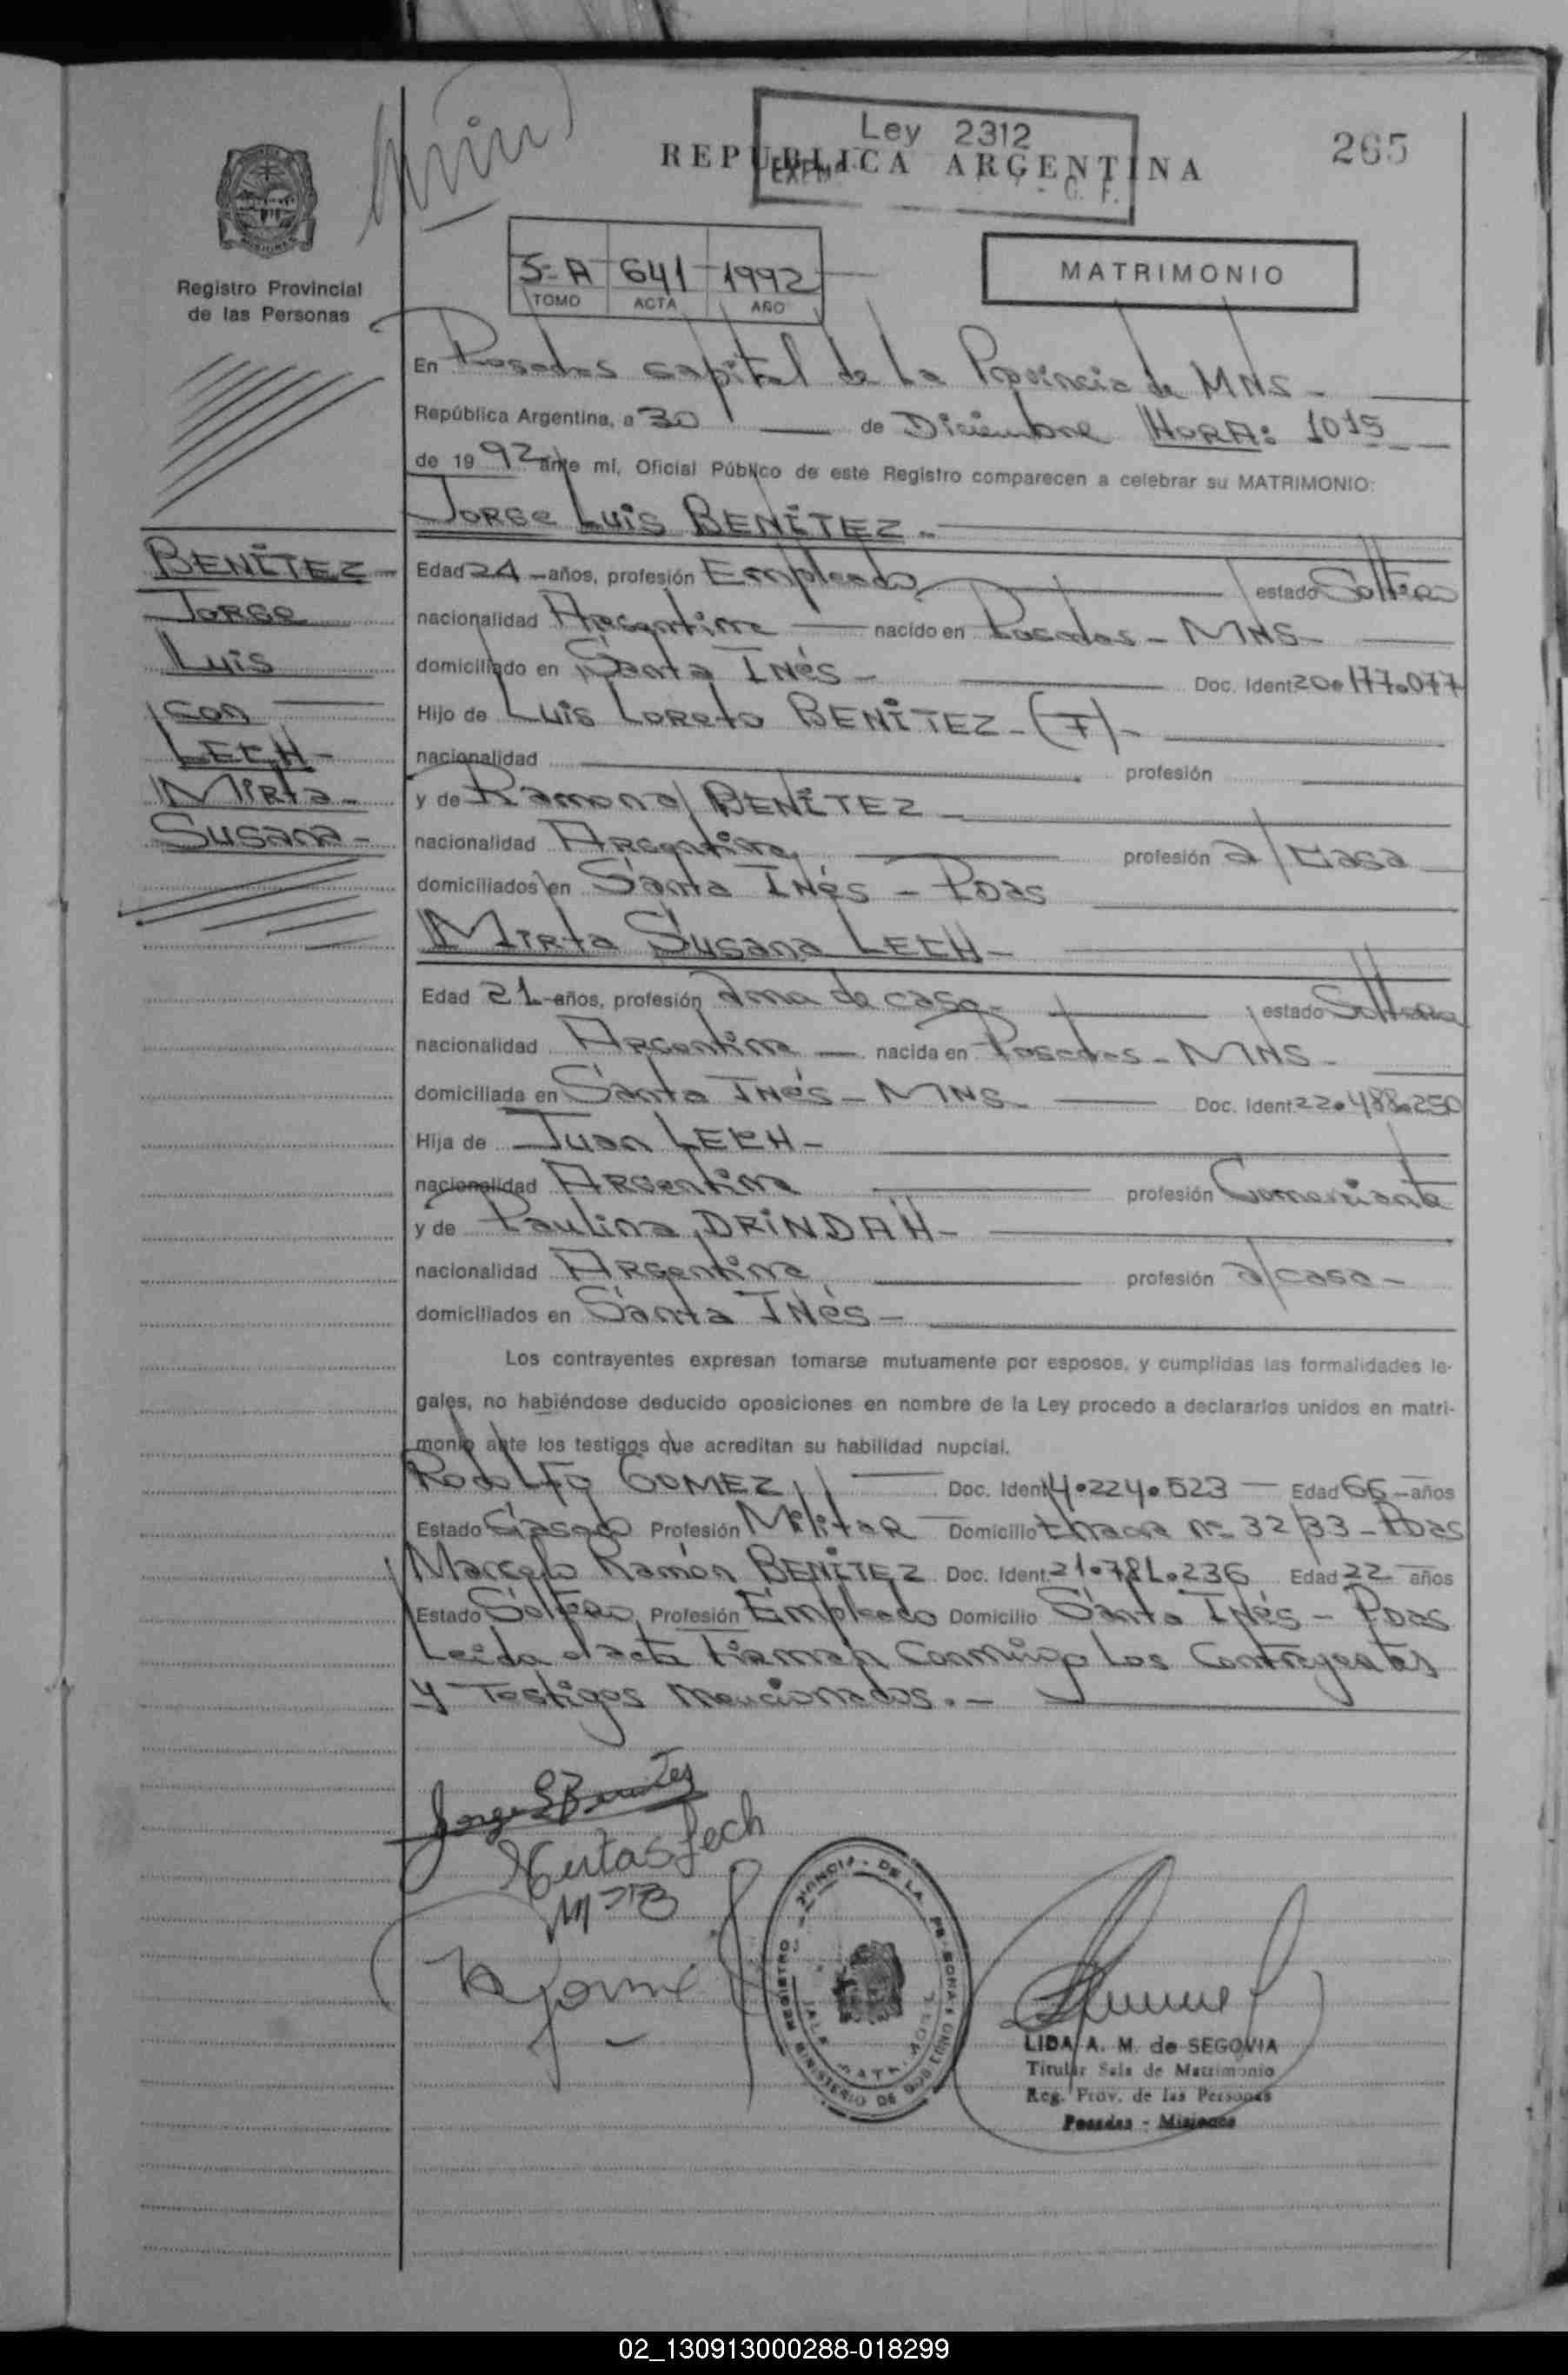 Ley 2312
REPUBLICA ARGENTINA
265
Registro Provincial
de las Personas
5-A 641 1992
TOMO ACTA AÑO
MATRIMONIO
En Posadas capital de La Provincia de MNS -
República Argentina, a 30 de Diciembre HORA: 1015
de 1992 ante mí, Oficial Público de este Registro comparecen a celebrar su MATRIMONIO:
JORGE LUIS BENÍTEZ -
BENÍTEZ -
JORGE
LUIS
con
LECH -
MIRTA -
SUSANA -
Edad 24 - años, profesión Empleado estado Soltero
nacionalidad Argentina nacido en Posadas - MNS -
domiciliado en Santa Inés - Doc. Ident. 20.177.077
Hijo de LUIS LORETO BENÍTEZ - (F) -
nacionalidad profesión
y de Ramona BENÍTEZ -
nacionalidad Argentina profesión a/casa
domiciliados en Santa Inés - Pdas
MIRTA SUSANA LECH -
Edad 21 - años, profesión Ama de casa - estado Soltera
nacionalidad Argentina nacida en Posadas - MNS -
domiciliada en Santa Inés - MNS - Doc. Ident. 22.488.250
Hija de Juan LECH -
nacionalidad Argentina profesión Comerciante
y de Paulina DRINDAH -
nacionalidad Argentina profesión a/casa -
domiciliados en Santa Inés -
Los contrayentes expresan tomarse mutuamente por esposos, y cumplidas las formalidades le-
gales, no habiéndose deducido oposiciones en nombre de la Ley procedo a declararlos unidos en matri-
monio ante los testigos que acreditan su habilidad nupcial.
RODOLFO GOMEZ Doc. Ident. 4.224.523 Edad 66 - años
Estado Casado Profesión Militar Domicilio nº 32/33 - Pdas
Marcelo Ramón BENÍTEZ Doc. Ident. 21.781.236 Edad 22 - años
Estado Soltero Profesión Empleado Domicilio Santa Inés - Pdas
Leida el acta Firman Conmigo Los Contrayentes
y Testigos mencionados. -
Jorge L Benitez
Mirta S Lech
LIDA A. M. de SEGOVIA
Titular Sala de Matrimonio
Reg. Prov. de las Personas
Posadas - Misiones
02_130913000288-018299